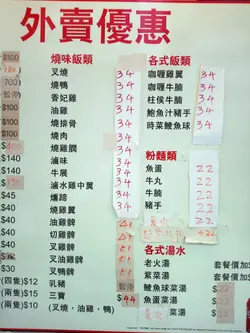 外賣優惠
燒味飯類
叉燒 34
燒鴨 34
香妃雞 34
油雞 34
燒排骨 34
燒肉 34
燒雞髀 34
滷味 34
牛展 34
滷水雞中翼 34
燻蹄 34
燒雞翼 34
油雞髀
切雞髀
叉雞髀
叉油雞髀
叉鴨髀
乳豬
三寶 44
(叉燒，油雞，鴨)
各式飯類
咖喱雞翼 34
咖喱牛腩 34
柱侯牛腩 34
鮑魚汁豬手 34
時菜鯪魚球 34
粉麵類
魚蛋 22
牛丸 22
牛腩 22
豬手 22
22
各式湯水
老火湯 套餐價加$
紫菜湯 套餐價加$
鯪魚球菜湯 $
魚蛋菜湯 $
$100
$100
$100
$100
$140
$140
$45
$35
$40
$40
$40
$30
(四隻)$12
(兩隻)$15
(兩隻)$10